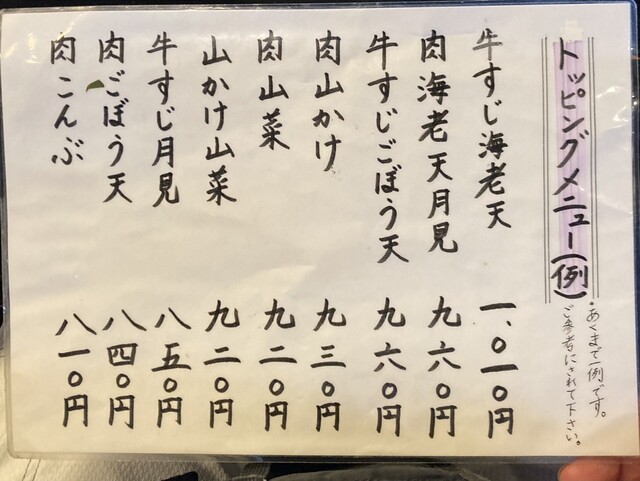 トッピングメニュー(例)
・あくまで一例です。
ご参考にされて下さい。
牛すじ海老天 一、〇一〇円
肉海老天月見 九六〇円
牛すじごぼう天 九六〇円
肉山かけ 九三〇円
肉山菜 九二〇円
山かけ山菜 九二〇円
牛すじ月見 八五〇円
肉ごぼう天 八四〇円
肉こんぶ 八一〇円